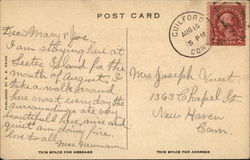 POST CARD
GUILFORD
AUG 10
5 PM
CONN
Dear Mary & Joe,
I am staying here at
Island for the
month of August, I
take a walk around
here most every day the
surroundings are very
beautiful here, nice and
quiet am doing fine.
love to all
Mrs
Mrs Joseph
1363 Chapel St
New Haven
Conn.
THIS SPACE FOR MESSAGE
THIS SPACE FOR ADDRESS